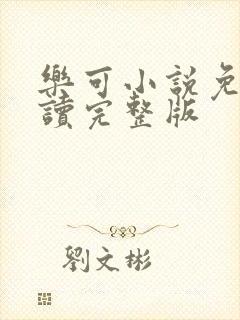 樂可小說免
讀完整版
劉文彬